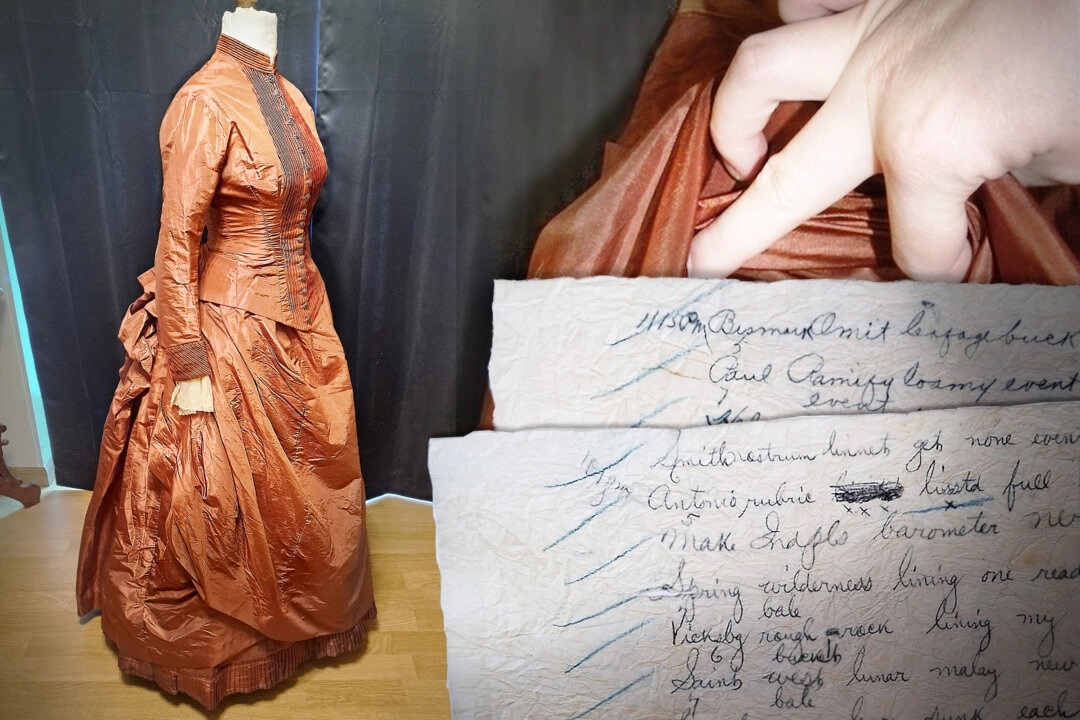 1113 Pm Bismark Omit leafage buck
Paul Ramify loamy event
event
Smith nostrum linnet get none event
8 Pm
Antonio rubric lisstd full
x x x x
5
Make Indpls barometer ner
Spring wilderness lining one read
7 bale
Vicksbg rough rock lining my
6 buck
Saint west lunar malay new
7 bale
each